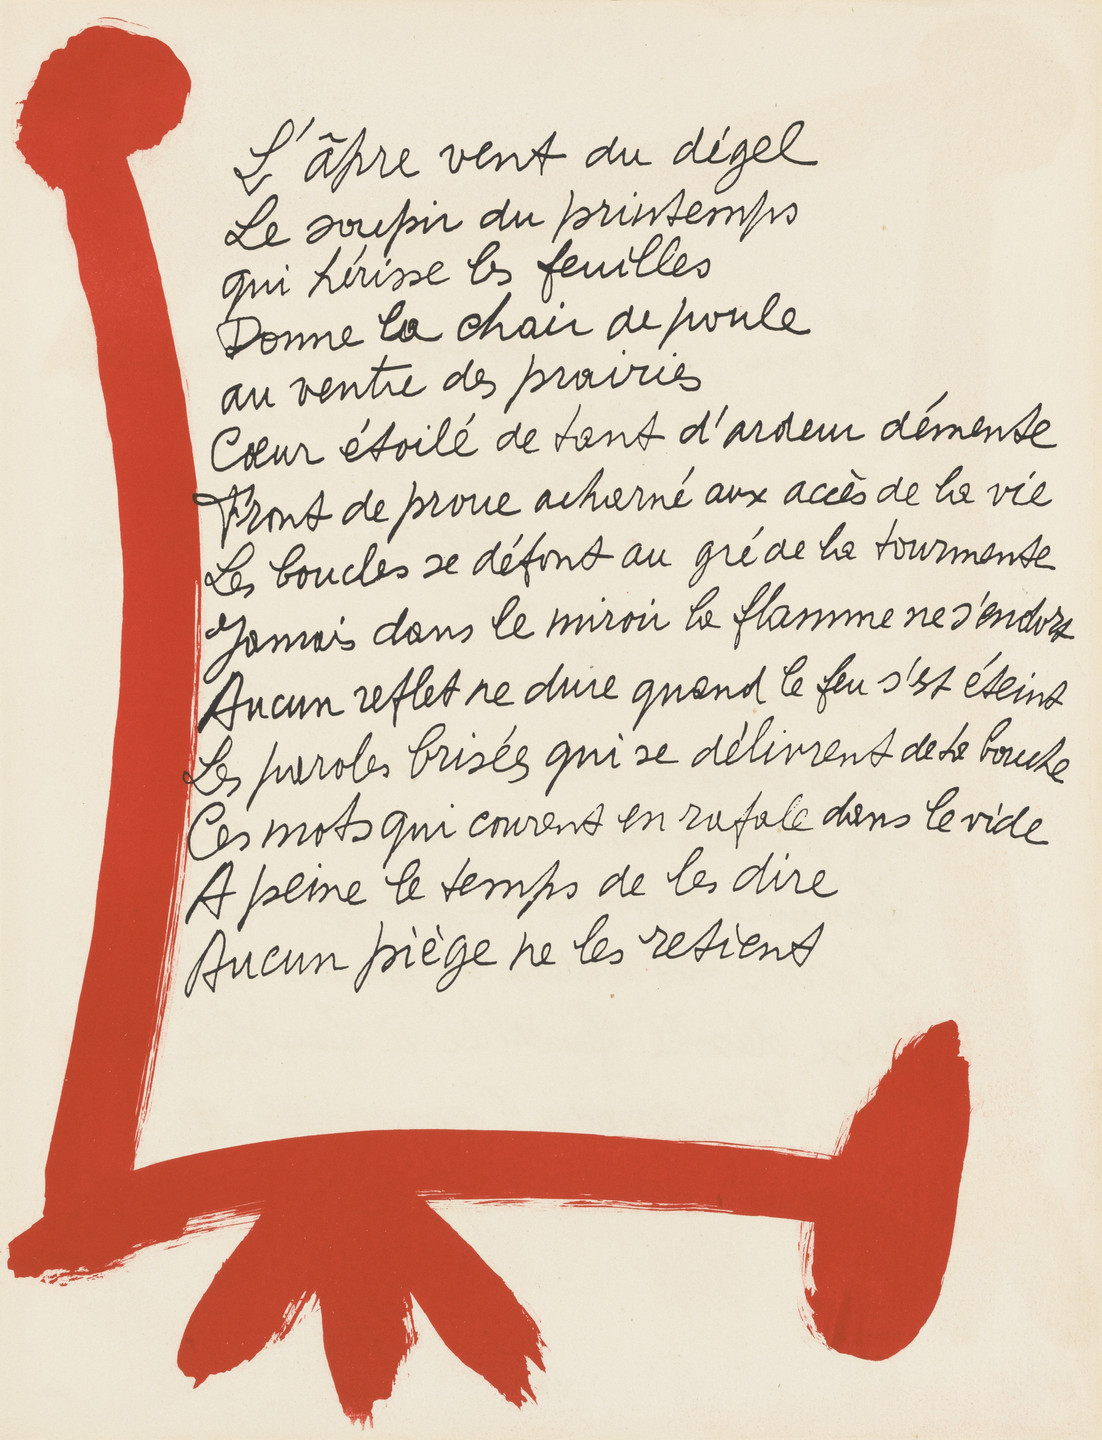 L'âpre vent du dégel
Le soupir du printemps
qui hérisse les feuilles
Donne la chair de poule
au ventre des prairies
Cœur étoilé de tant d'ardeur démente
Front de proue acharné aux accès de la vie
Les boucles se défont au gré de la tourmente
Jamais dans le miroir la flamme ne s'endort
Aucun reflet ne dure quand le feu s'est éteint
Les paroles brisées qui se délivrent de ta bouche
Ces mots qui courent en rafale dans le vide
A peine le temps de les dire
Aucun piège ne les retient